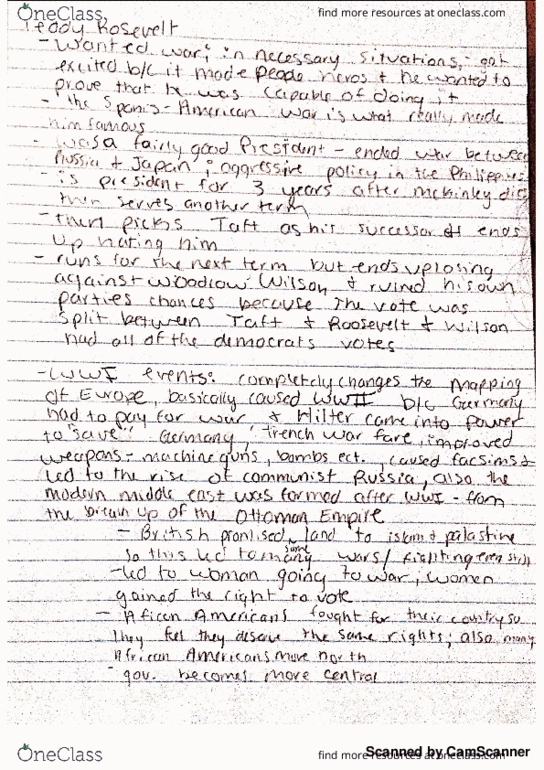 OneClass
find more resources at oneclass.com
Teddy Rosevelt
- Wanted war; in necessary situations, - got
excited b/c it made people heros + he wanted to
prove that he was capable of doing it
- The Spanis - American war is what really made
him famous
- was a fairly good President - ended war between
Russia + Japan; aggressive policy in the Philippines
- is president for 3 years after mckinley dies
then serves another term
- then picks Taft as his successor + ends
up hating him
- runs for the next term but ends up losing
against Woodrow Wilson + ruined his own
parties chances because the vote was
split between Taft + Roosevelt + Wilson
had all of the democrats votes
- WWI events: completely changes the mapping
of Europe, basically caused WWII b/c Germany
had to pay for war + Hilter came into power
to "save" Germany, Trench war fare, improved
weapons - machine guns, bombs ect. caused facsims +
led to the rise of communist Russia, also the
modern middle east was formed after WWI - from
the break up of the Ottoman Empire
- British promised same land to islam + palastine
so this led to many wars/ fighting even still
- led to woman going to war, women
gained the right to vote
- African Americans fought for their country so
they feel they deserve the same rights; also many
African Americans move north
- gov. becomes more central
OneClass
find more resources at oneclass.com
Scanned by CamScanner